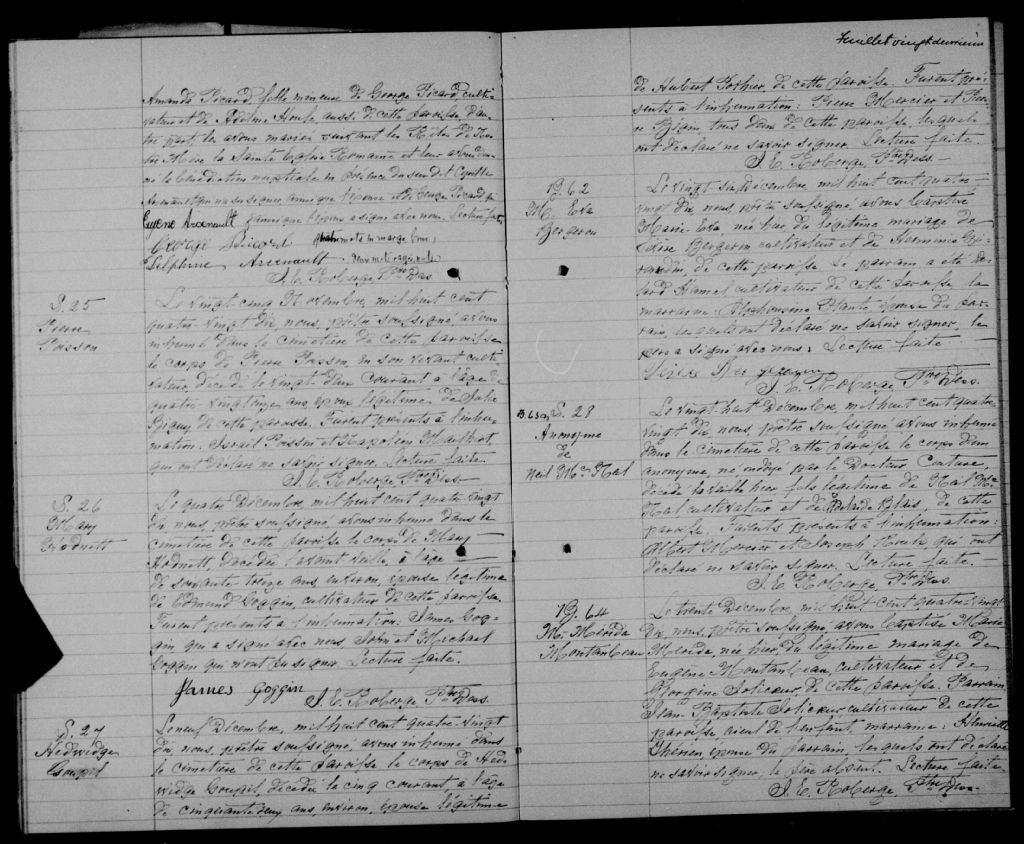 Amanda Picard fille mineure de George Picard culti-
vateur et de Adeline Houle aussi de cette paroisse d'au-
tre part, les avons mariés suivant les Rites de No-
tre Mère la Sainte Eglise Romaine et leur avons don-
né la bénédiction nuptiale en présence du susdit Cyrille
Arsenault qui na su signer ainsi que l'épouse et de George Picard
Eugène Arcenault ainsi que l'époux a signé avec nous. Lecture faite
George Picard quatre mots en marge bons
Delphine Arcenault deux mots rayés nuls
J. E. Roberge Ptre Dess
S. 25
Pierre
Poisson
Le vingt cinq Novembre, mil huit cent
quatre-vingt dix, nous, prêtre soussigné avons
inhumé dans le cimetière de cette paroisse
le corps de Pierre Poisson, en son vivant culti-
vateur, décédé le vingt deux courant à l'âge de
quatre-vingt onze ans, époux légitime de Julie
de cette paroisse. Furent présents à l'inhu-
mation: Israël Poisson et Napoléon
qui ont déclaré ne savoir signer. Lecture faite
J. E. Roberge Ptre Dess
S. 26
Mary
Hodnett
Le quatre Décembre, mil huit cent quatre vingt
dix nous, prêtre soussigné avons inhumé dans le
cimetière de cette paroisse le corps de Mary
Hodnett, décédée l'avant veille, à l'âge
de soixante treize ans, environ, épouse légitime
de Edmund Goggin, cultivateur de cette paroisse
Furent présents à l'inhumation: James Gog-
gin qui a signé avec nous, John et Michael
Goggin qui n'ont su signer. Lecture faite.
James Goggin
J. E. Roberge Ptre Dess.
S. 27
Hedwidge
Goupil
Le neuf Décembre, mil huit cent quatre-vingt
dix nous, prêtre soussigné, avons inhumé dans
le cimetière de cette paroisse le corps de Hed-
widge Goupil, décédée le cinq courant, à l'âge
de cinquante deux ans, environ, épouse légitime
Feuillet vingt deuxième
de Hubert Pothier, de cette paroisse. Furent pré-
sents à l'inhumation: Pierre Mercier et Pier-
re tous deux de cette paroisse, lesquels
ont déclaré ne savoir signer. Lecture faite
J. E. Roberge, Ptre Dess
B. 62
M. Eva
Bergeron
Le vingt six Décembre, mil huit cent quatre-
vingt dix, nous, prêtre soussigné, avons baptisé
Marie-Eva née hier du légitime mariage de
Bergeron cultivateur et de Herminie
de cette paroisse. Le parrain a été
Hamel cultivateur de cette paroisse la
marraine Alphonsine Plante épouse du par-
rain, lesquels ont déclaré ne savoir signer, le
père a signé avec nous. Lecture faite
J. E. Roberge, Ptre Dess.
B. 63 et S. 28
Anonyme
de
Neil Mc Neal
Le vingt huit Décembre, mil huit cent quatre
vingt dix, nous, prêtre soussigné avons inhumé
dans le cimetière de cette paroisse le corps d'un
anonyme, né ondoyé par le Docteur Couture,
décédé la veille hier, fils légitime de Neal Mc
Neal cultivateur et de Blais, de cette
paroisse. Furents présents à l'inhumation:
Albert Mercier et Joseph Houle qui ont
déclaré ne savoir signer. Lecture faite.
J. E. Roberge Ptre Dess.
B. 64
M. Mérida
Montambeau
Le trente Décembre, mil huit cent quatre vingt
dix, nous, prêtre soussigné, avons baptisé Marie
Merida, née hier, du légitime mariage de
Eugène Montambeau, cultivateur et de
Georgine Jolicoeur, de cette paroisse. Parrain
Jean Baptiste Jolicoeur cultivateur de cette
paroisse aieul de l'enfant, marraine: Henriette
Therien épouse du parrain, lesquels ont déclaré
ne savoir signer, le père absent. Lecture faite
J. E. Roberge, Ptre Dess.